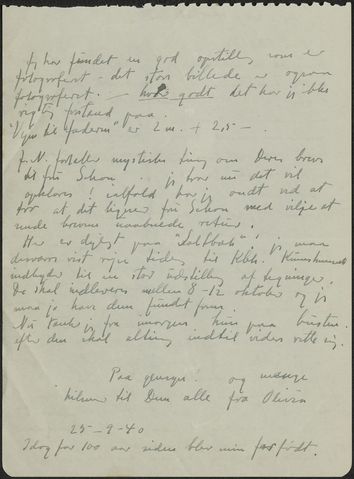 Jeg har fundet en god opstilling som er
fotograferet - det store billede er ogsaa
fotograferet. - hvor godt det har jeg ikke
rigtig forstand paa.
er 2 m. + 2,5 -.
J. N. fortæller mystiske ting om Deres brev
til fru Schou .. jeg tror nu det vil
opklares! ialfald har jeg ondt ved at
tro at det ligner fru Schou med vilje at
sende brevene uaabnede retur.
Her er dejligt paa "Saltbæk"! jeg maa
desværre vist rejse tidlig til Kbh.
indbyder til en stor udstilling af tegninger.
De skal indleveres mellem 8-12 oktober og jeg
maa jo have dem fundet frem.
Nu tænker jeg fra imorgen kun paa
efter den skal alting indtil videre rette sig.
Paa gensyn. og mange
hilsner til Dem alle fra Olivia
25-9-40
Idag for 100 aar siden blev min far født.